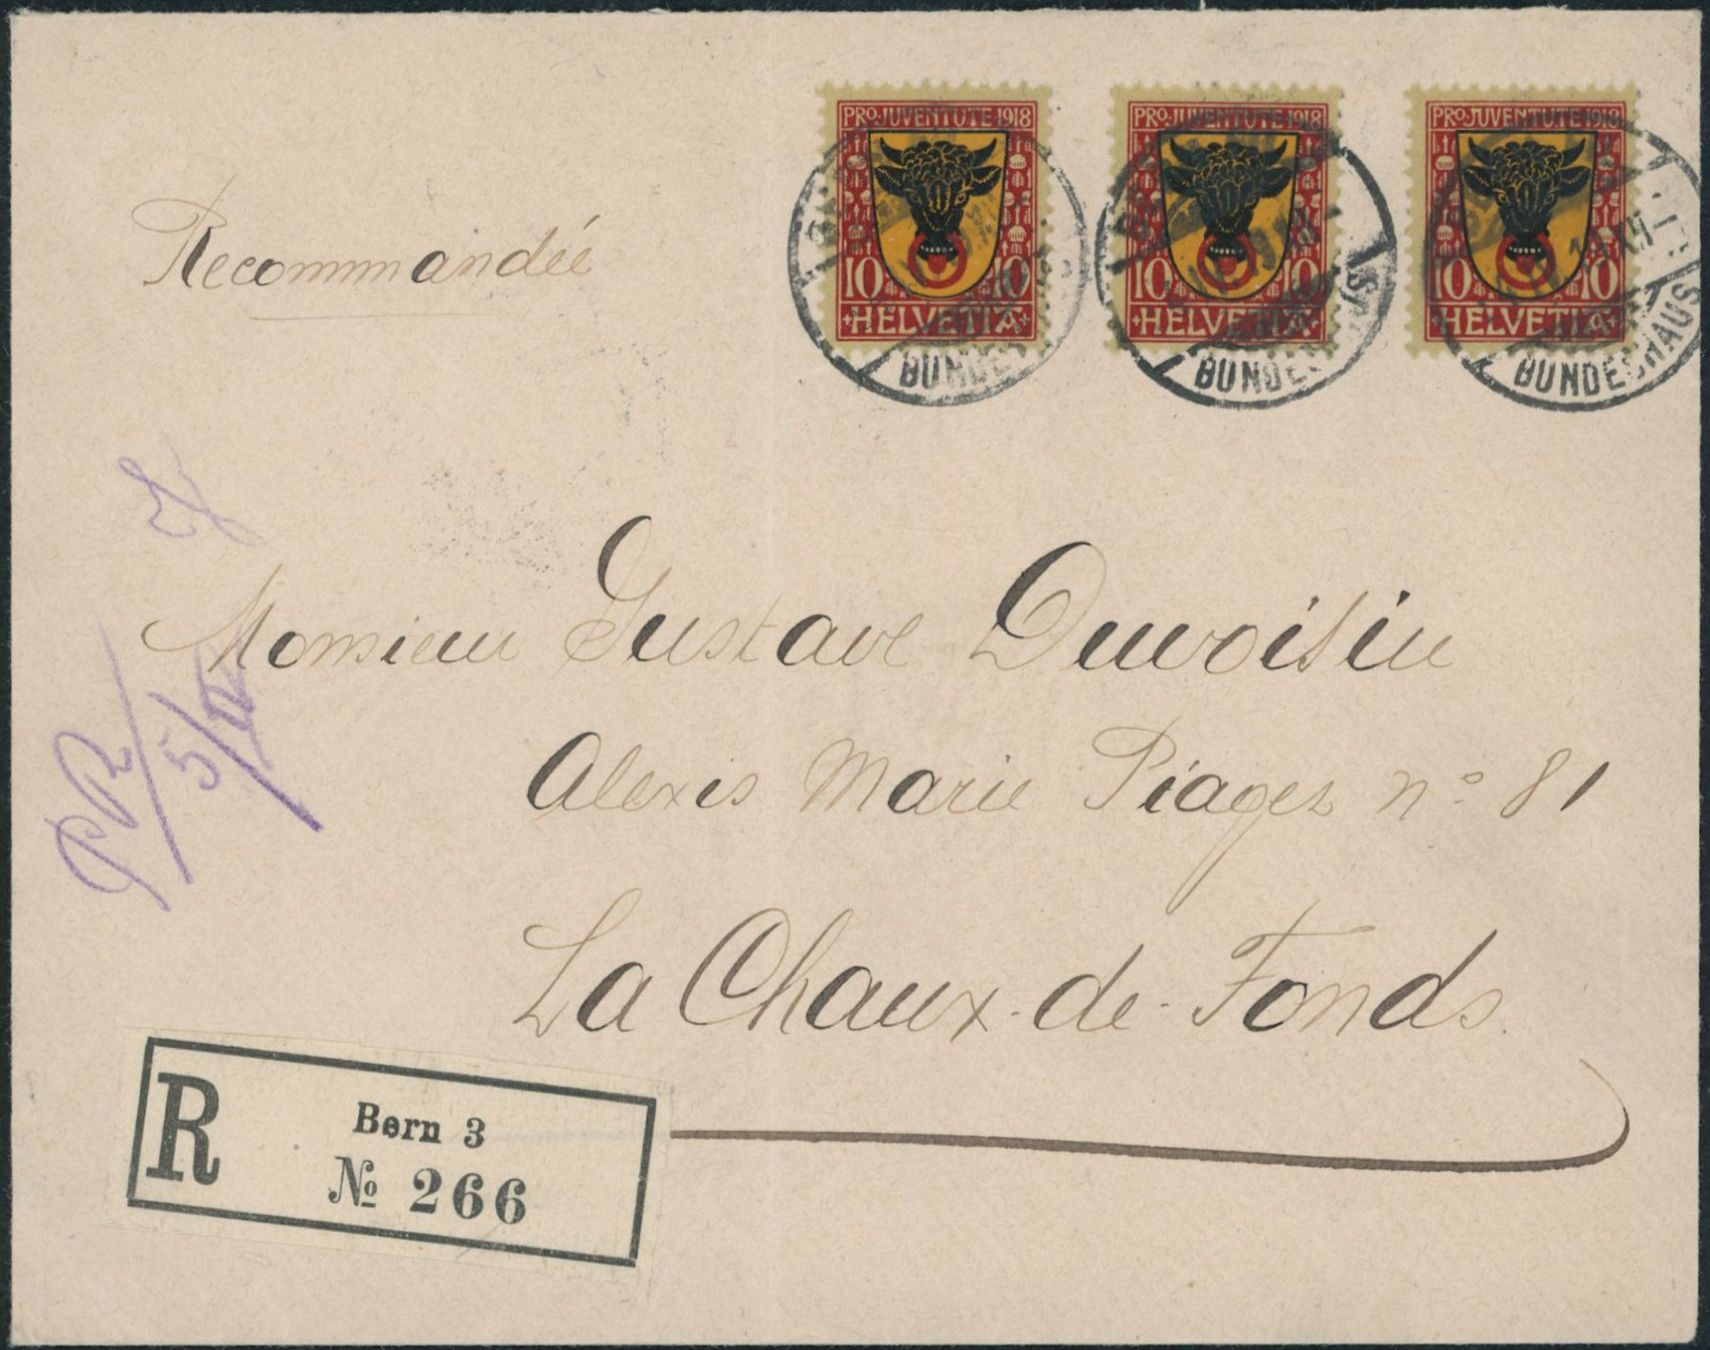 PRO JUVENTUTE 1918
10 10
HELVETIA
PRO JUVENTUTE 1918
10 10
HELVETIA
PRO JUVENTUTE 1918
10 10
HELVETIA
BUNDE
BUNDE
BUNDESHAUS
Recommandée
Monsieur Gustave Duvoisin
Alexis Marie Piaget n° 81
La Chaux-de-Fonds.
R
Bern 3
No 266